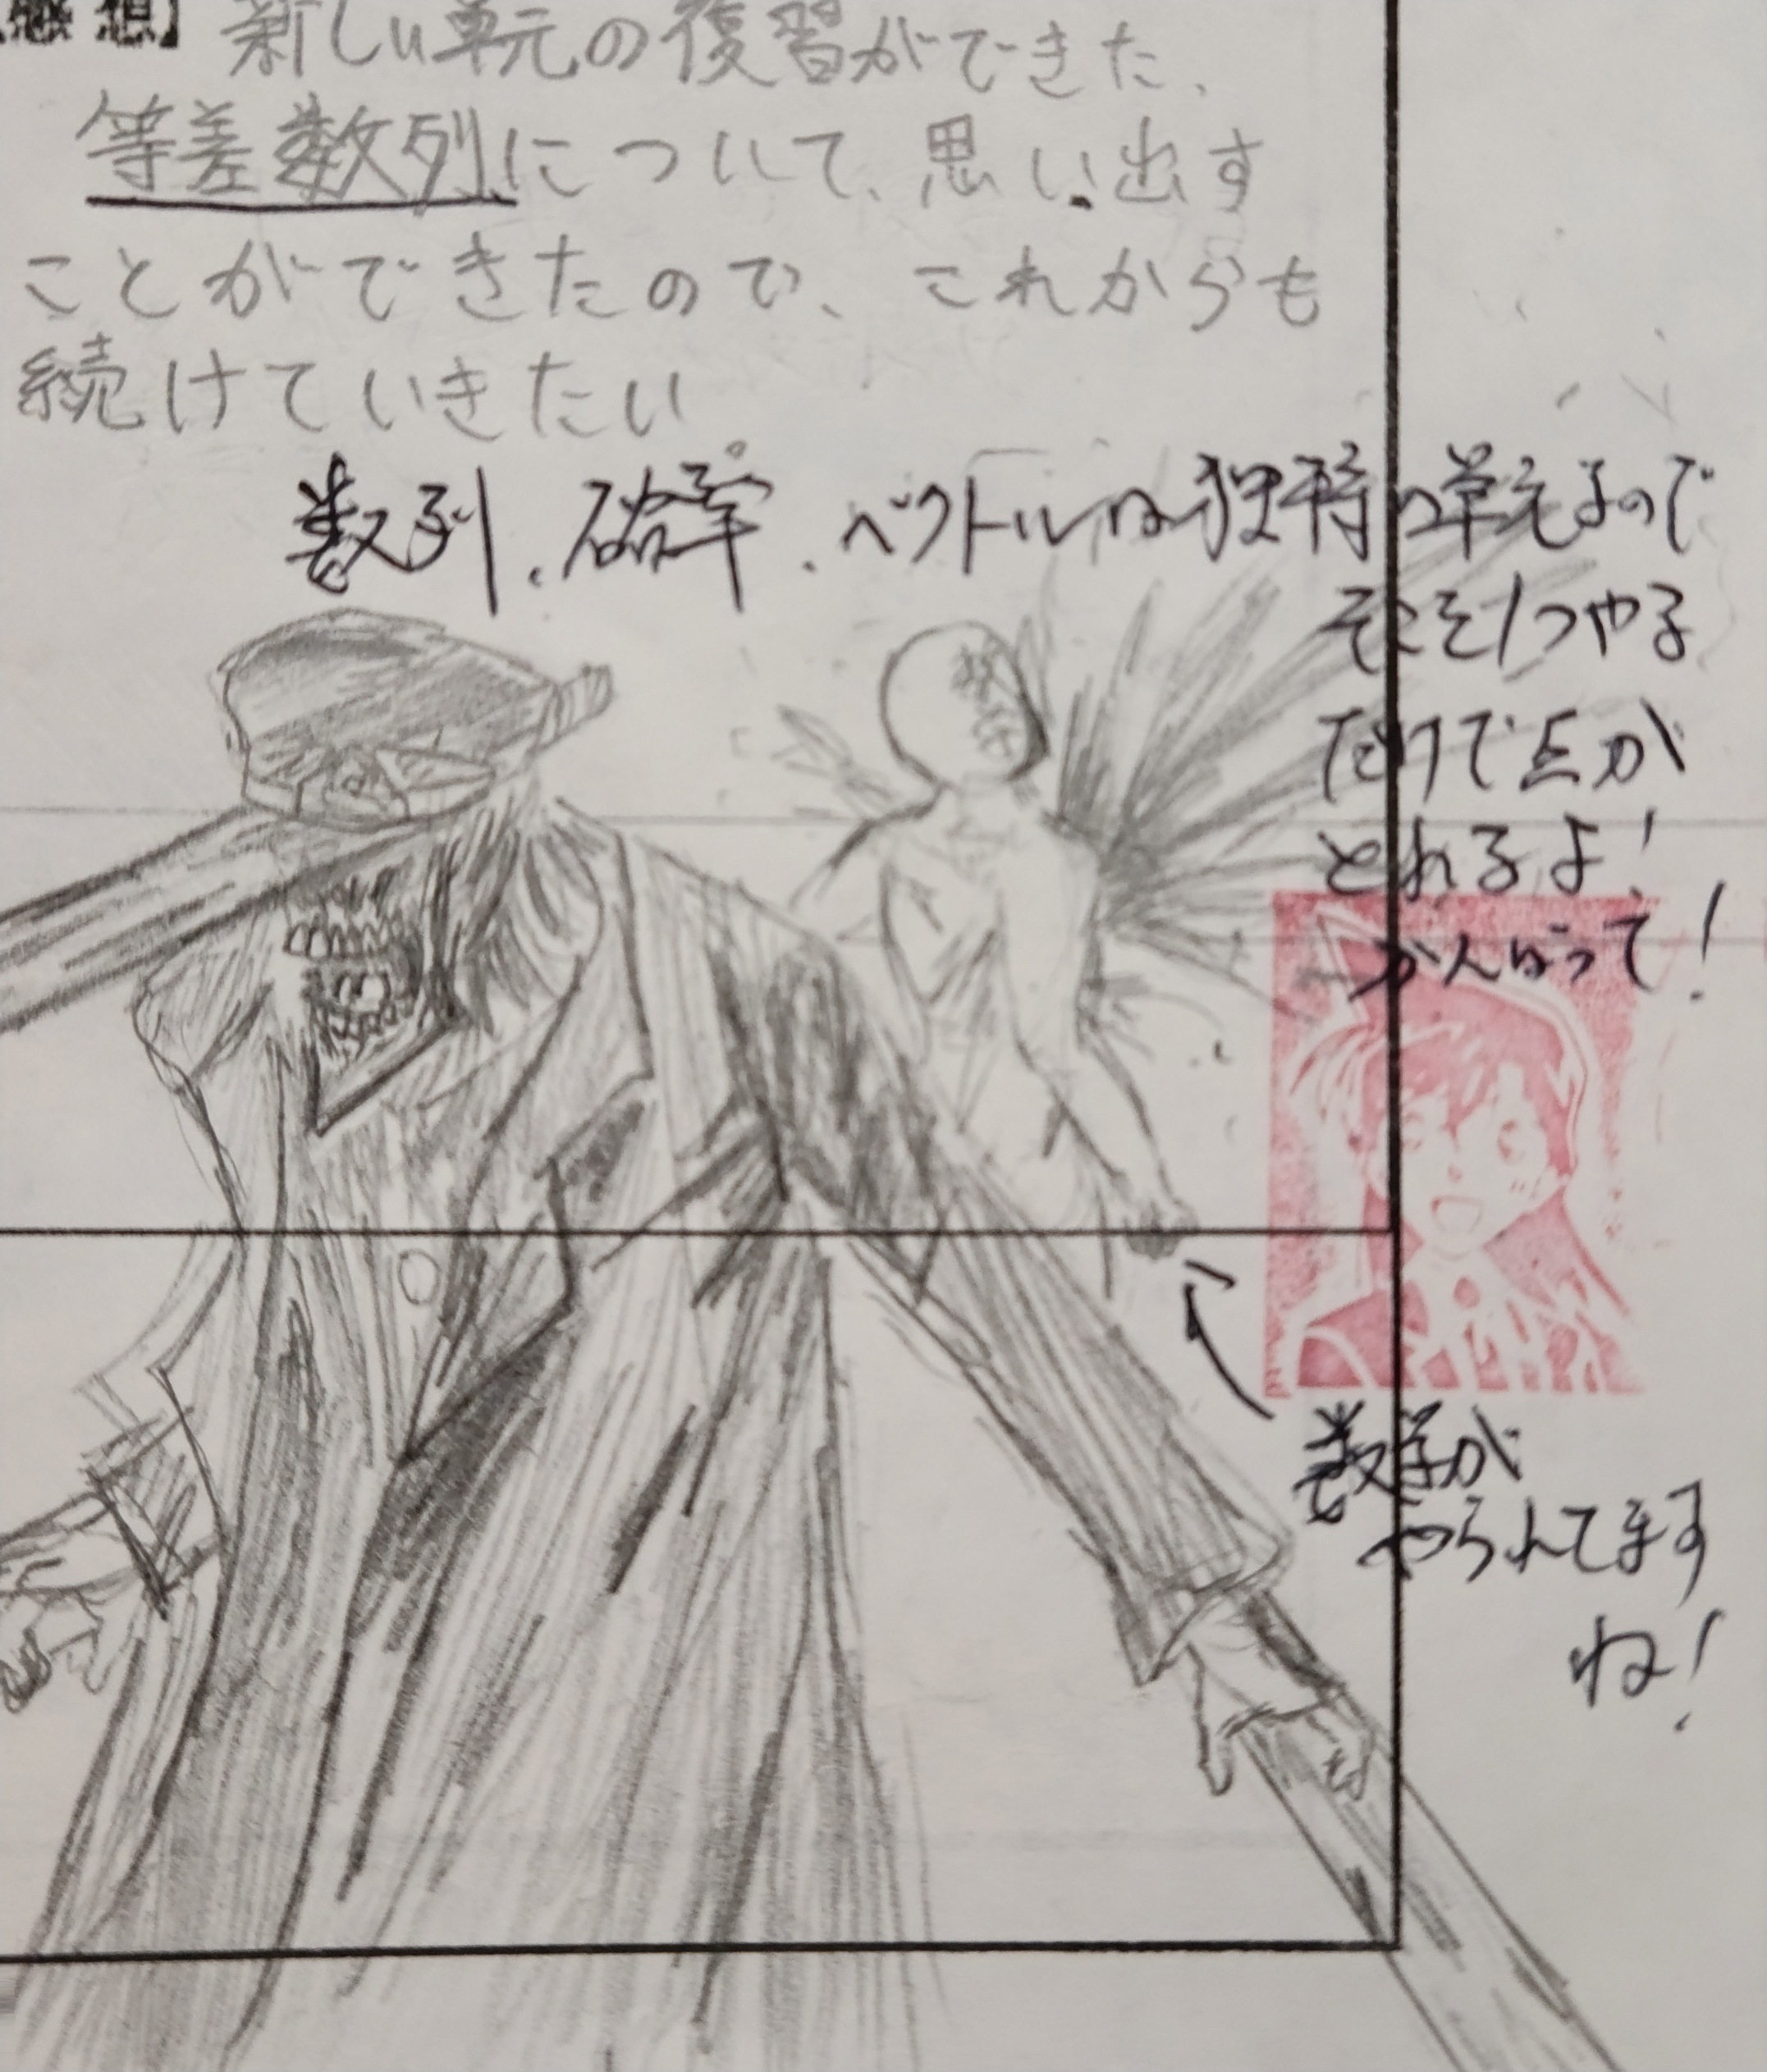 【感想】 新しい単元の復習ができた、
等差数列について、思い出す
ことができたので、これからも
続けていきたい
数列、確率、ベクトルは独特の単元なので
そこを1つやる
だけで点が
とれるよ!
がんばって!
数学
数学が
やられてます
ね!